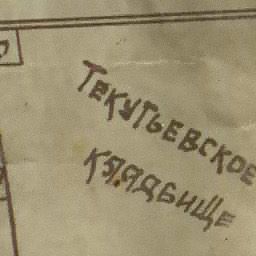 Текутьевское
кладбище